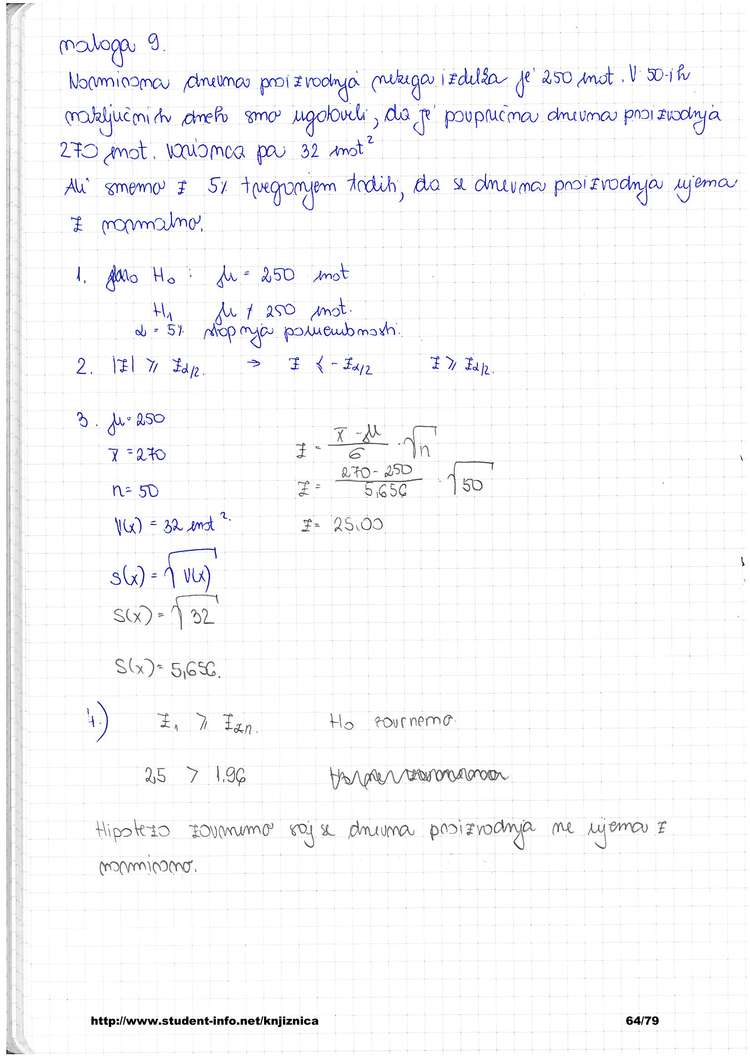 naloga 9.
Normirana dnevna proizvodnja nekega izdelka je 250 enot. V 50-ih
naključnih dneh smo ugotovili, da je povprečna dnevna proizvodnja
270 enot. varianca pa 32 enot²
Ali smemo z 5% tveganjem trditi, da se dnevna proizvodnja ujema
z normalno.
1. H₀ : μ = 250 enot
H₁ μ ≠ 250 enot.
α = 5% stopnja pomembnosti.
2. |z| ≥ z α/2. → z ≤ -z α/2 z ≥ z α/2.
3. μ = 250
x̄ = 270 z = (x̄ - μ)/σ · √n
n = 50 z = (270 - 250)/5,656 · √50
V(x) = 32 enot². z = 25,00
s(x) = √V(x)
s(x) = √32
s(x) = 5,656.
4.) H₀ zavrnemo
25 > 1.96
Hipotezo zavrnemo saj se dnevna proizvodnja ne ujema z
normirano.
http://www.student-info.net/knjiznica 64/79